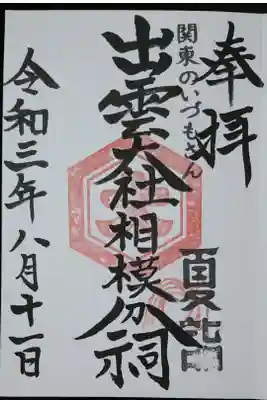 奉拝
夏詣
関東のいづもさん
出雲大社相模分祠
令和三年八月十一日